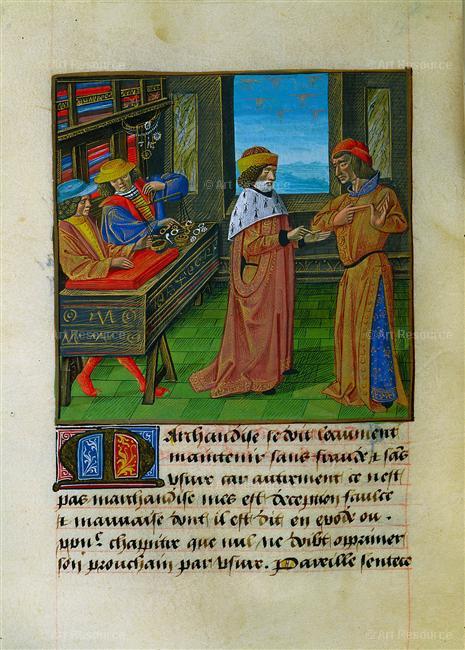 © Art Resource
© Art Resource
© Art Resource
© Art Resource
© Art Resource
Marchandise se doit loiaument
maintenir sans fraude et sans
usure car autrement ce n'est
pas marchandise mes est decepcion faulce
et mauvaise dont il est dit en exode ou
chapitre que nul ne doibt opprimer
son prouchain par usure. Pareille sentece
© Art Resource
© Art Resource